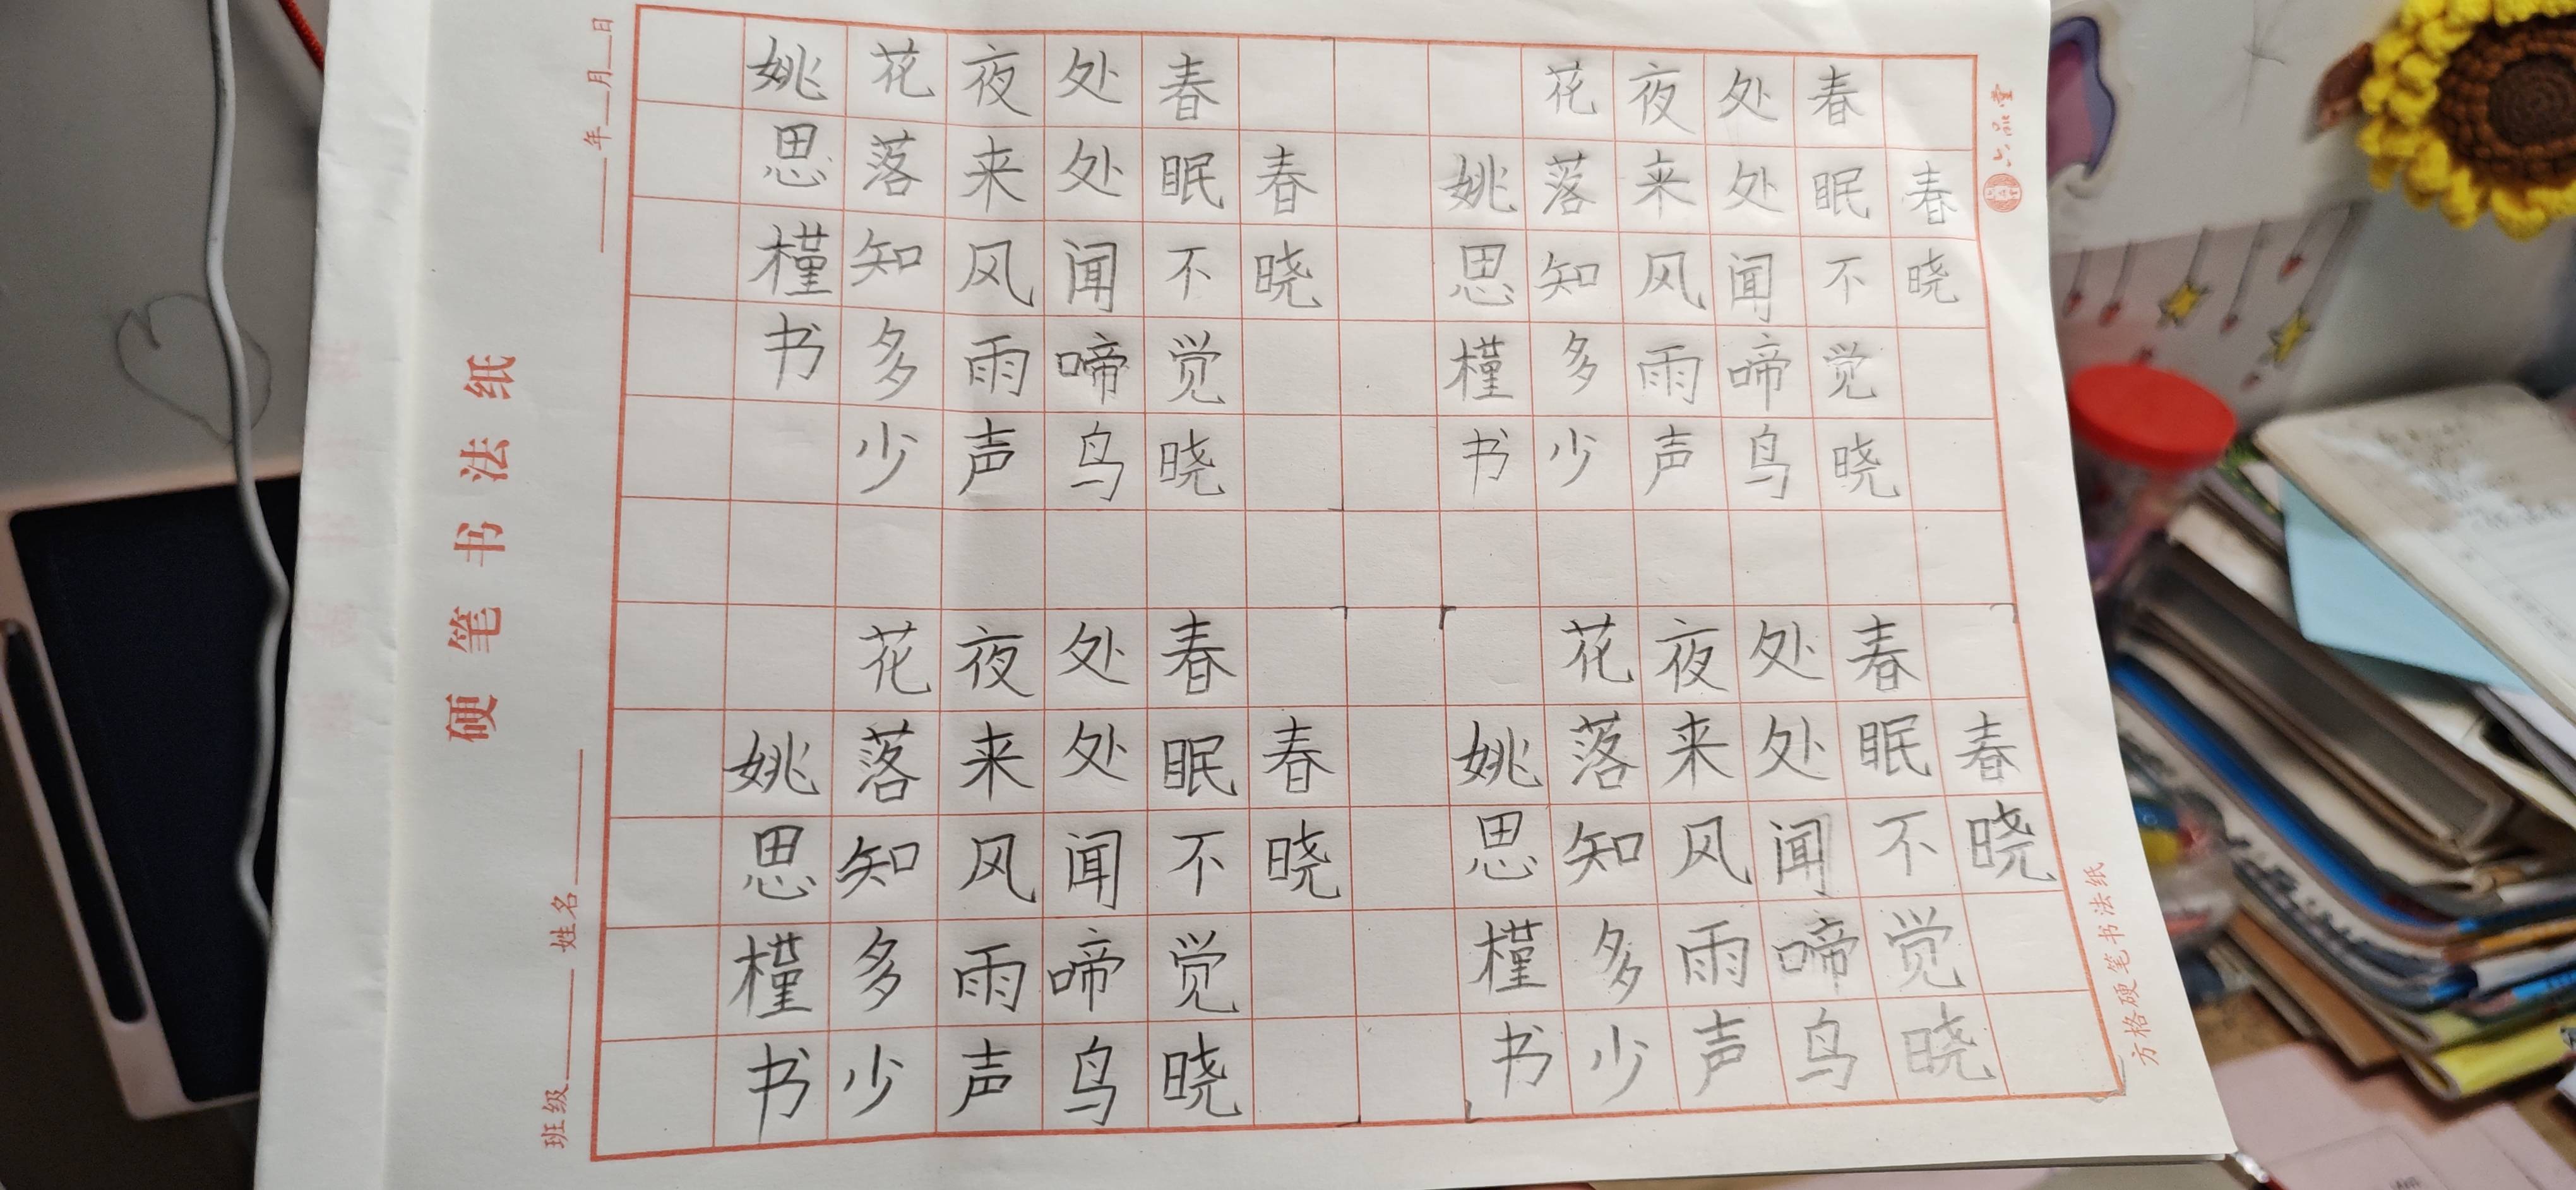 硬笔书法纸
班级 姓名
年 月 日
春晓
春眠不觉晓
处处闻啼鸟
夜来风雨声
花落知多少
姚思槿书
春晓
春眠不觉晓
处处闻啼鸟
夜来风雨声
花落知多少
姚思槿书
春晓
春眠不觉晓
处处闻啼鸟
夜来风雨声
花落知多少
姚思槿书
春晓
春眠不觉晓
处处闻啼鸟
夜来风雨声
花落知多少
姚思槿书
六品堂
方格硬笔书法纸